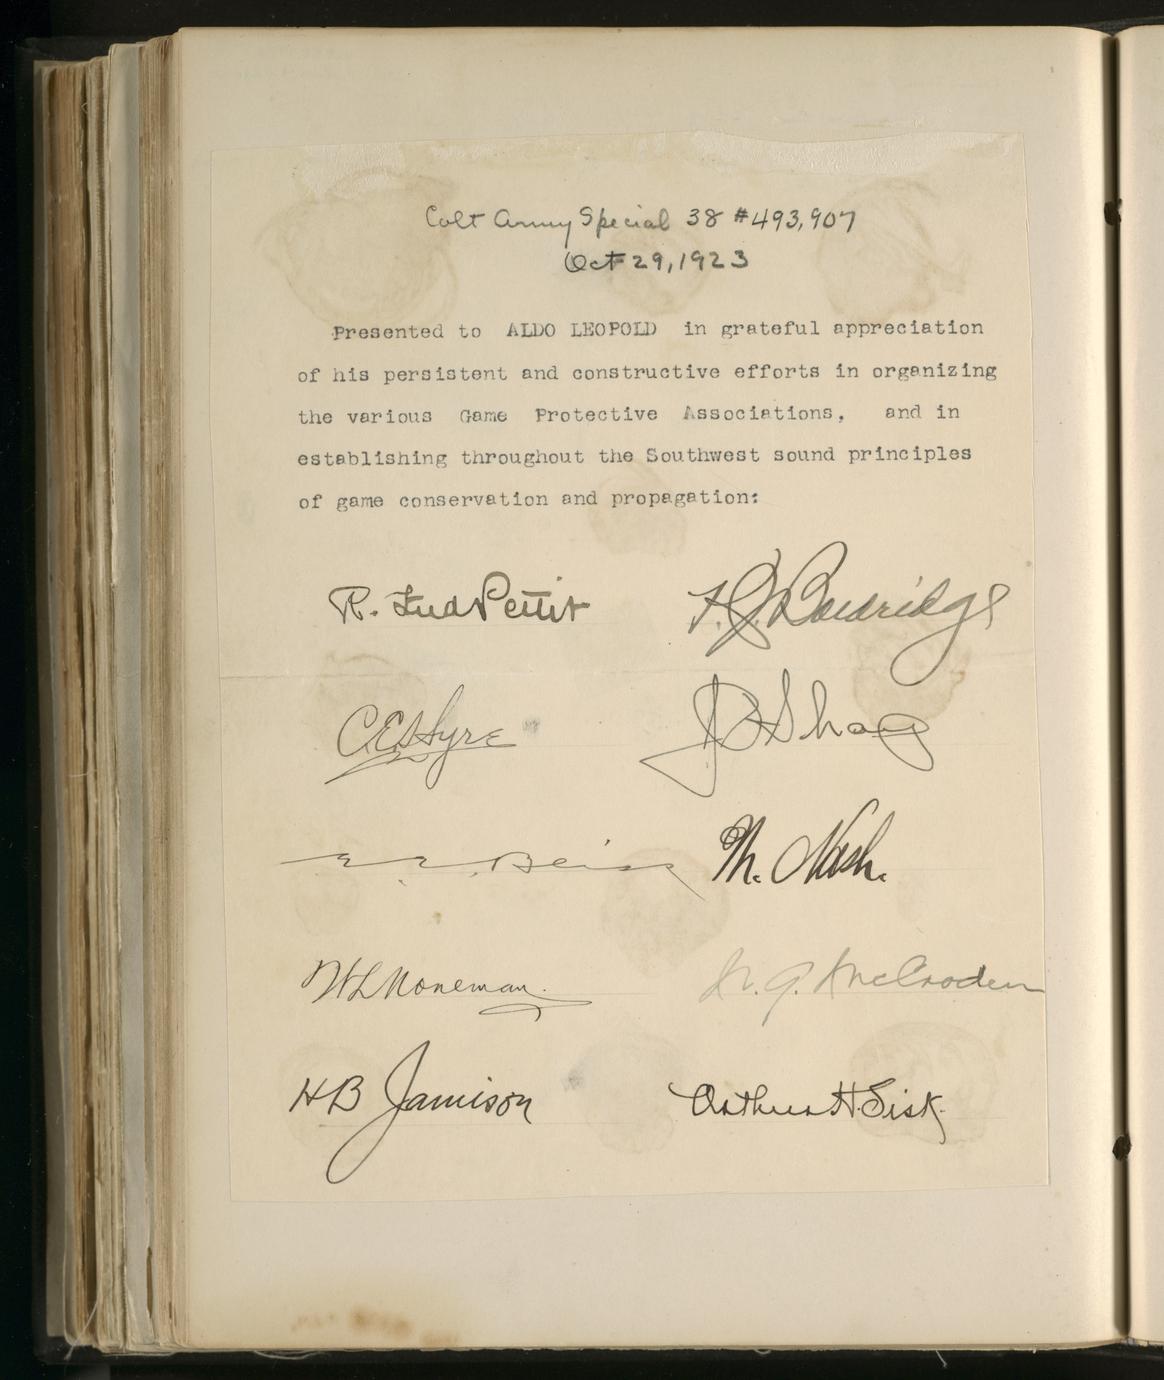 Colt Army Special 38 #493,907
Oct 29, 1923
Presented to ALDO LEOPOLD in grateful appreciation
of his persistent and constructive efforts in organizing
the various Game Protective Associations, and in
establishing throughout the Southwest sound principles
of game conservation and propagation:
R. Fred Pettit
F. J.
C.E.
J B
E. E.
M. Nash.
W L
H B Jamison
Arthur H. Sisk.